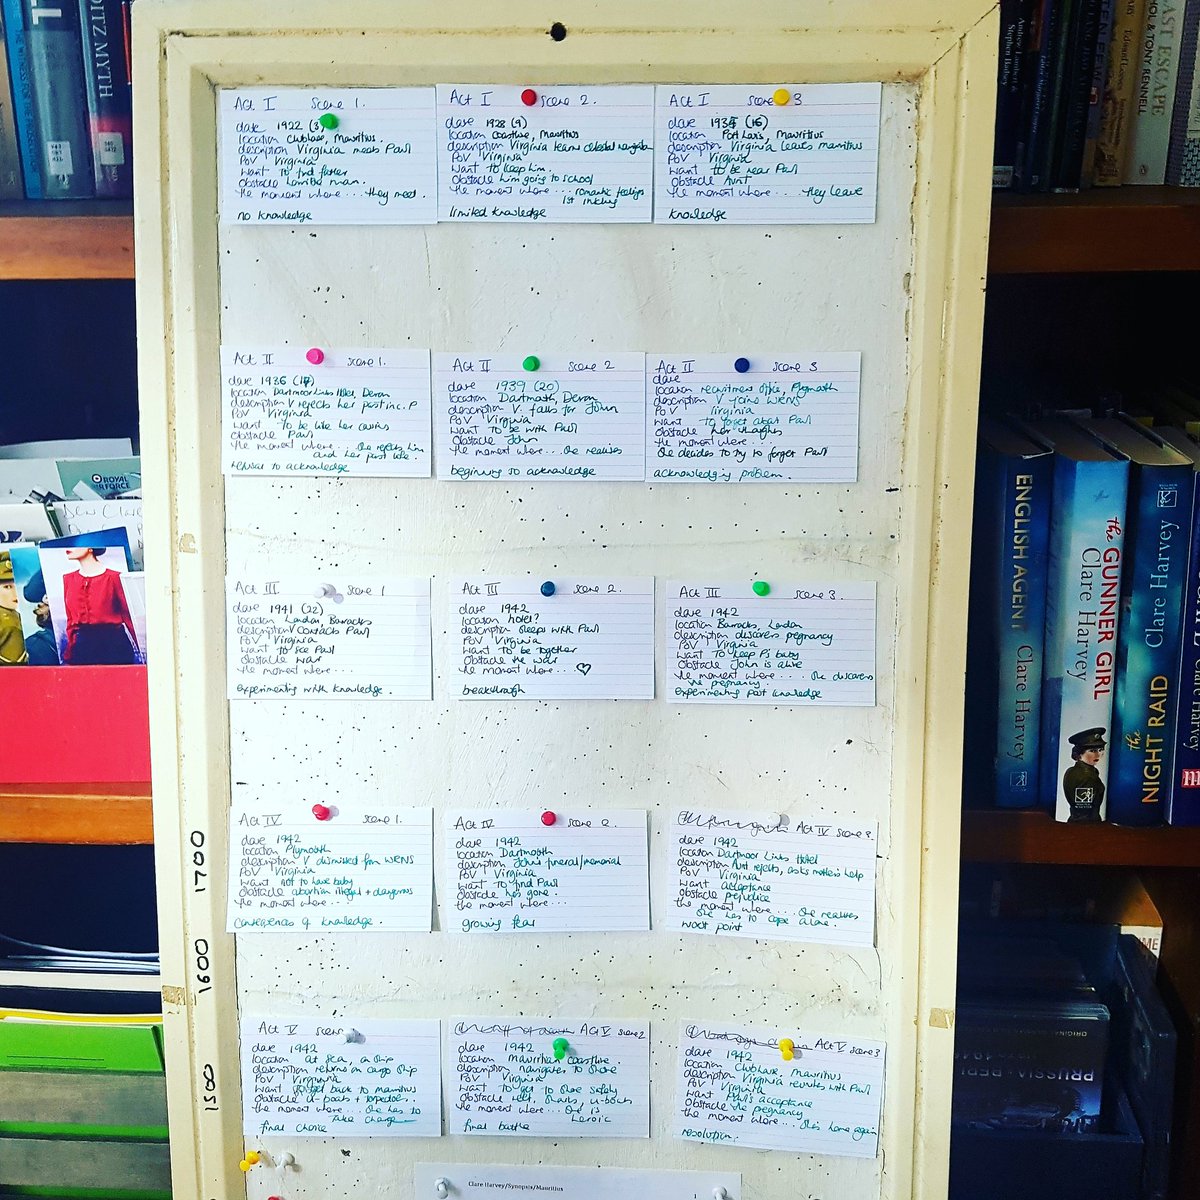 Act I Scene 1.
date 1922 (3)
location Clublave, Mauritius.
description Virginia meets Paul
POV Virginia
want To find father
Obstacle
the moment where... they meet.
no knowledge
Act I Scene 2.
date 1928 (9)
location Coastline, Mauritius
description Virginia learns celestial navigation
POV Virginia
want To keep him.
Obstacle him going to school
the moment where... romantic feelings
1st inkling
limited knowledge
Act I Scene 3
date (16)
location Port Louis, Mauritius
description Virginia leaves Mauritius
POV Virginia
want To be near Paul
Obstacle Aunt
the moment where... they leave
knowledge
Act II Scene 1.
date 1936 (17)
location Dartmoor Links Hotel, Devon
description V rejects her past inc. P
POV Virginia
want To be like her cousins
Obstacle Paul
the moment where... She rejects him
and her past life.
refusal to acknowledge
Act II Scene 2
date 1939 (20)
location Dartmouth, Devon
description V. falls for John
POV Virginia
want To be with Paul
Obstacle John
the moment where... She realises
beginning to acknowledge
Act II Scene 3
date
location recruitment office, Plymouth
description V joins WRNS
POV Virginia
want to forget about Paul
obstacle her thoughts
the moment where...
She decides to try to forget Paul
acknowledging problem.
Act III Scene 1
date 1941 (22)
location London, Barracks
description V contacts Paul
POV Virginia
want To see Paul
Obstacle war
the moment where...
experimenting with knowledge.
Act III Scene 2.
date 1942
location hotel?
description Sleeps with Paul
POV Virginia
want To be together
Obstacle the war
the moment where... ♡
breakthrough
Act III Scene 3.
date 1942
location Barracks, London
description discovers pregnancy
POV Virginia
want To keep P's baby
Obstacle John is alive
the moment where... She discovers
the pregnancy.
experimenting post knowledge
Act IV Scene 1.
date 1942
location Plymouth
description V dismissed from WRNS
POV Virginia
want not to have baby
Obstacle abortion illegal + dangerous
the moment where...
Consequences of knowledge.
Act IV Scene 2.
date 1942
location Dartmouth
description John's funeral/memorial
POV Virginia
want To find Paul
Obstacle has gone.
the moment where...
growing fear
Act IV Scene 3
date 1942
location Dartmoor Links Hotel
description Aunt rejects, asks mother's help
POV Virginia
want acceptance
Obstacle prejudice
the moment where... She realises
She has to cope alone.
worst point
Act V Scene
date 1942
location at sea, on ship
description returns on cargo ship
POV Virginia
want To get back to Mauritius
Obstacle U-boats + torpedoes.
the moment where... She has to
take charge
final choice
Act V Scene 2
date 1942
location Mauritian coastline.
description navigates to shore
POV Virginia
want To get to shore safely
Obstacle reef, sharks, u-boats
the moment where... She is
heroic
final battle
Act V Scene 3
date 1942
location Clublave, Mauritius
description Virginia reunites with Paul
POV Virginia
want Paul's acceptance
Obstacle the pregnancy
the moment where... She's home again
resolution.
Clare Harvey/Synopsis/Mauritius
1700
1600
1500
ROYAL AIR FORCE
ENGLISH AGENT Clare Harvey
the GUNNER GIRL Clare Harvey
the NIGHT RAID Clare Harvey